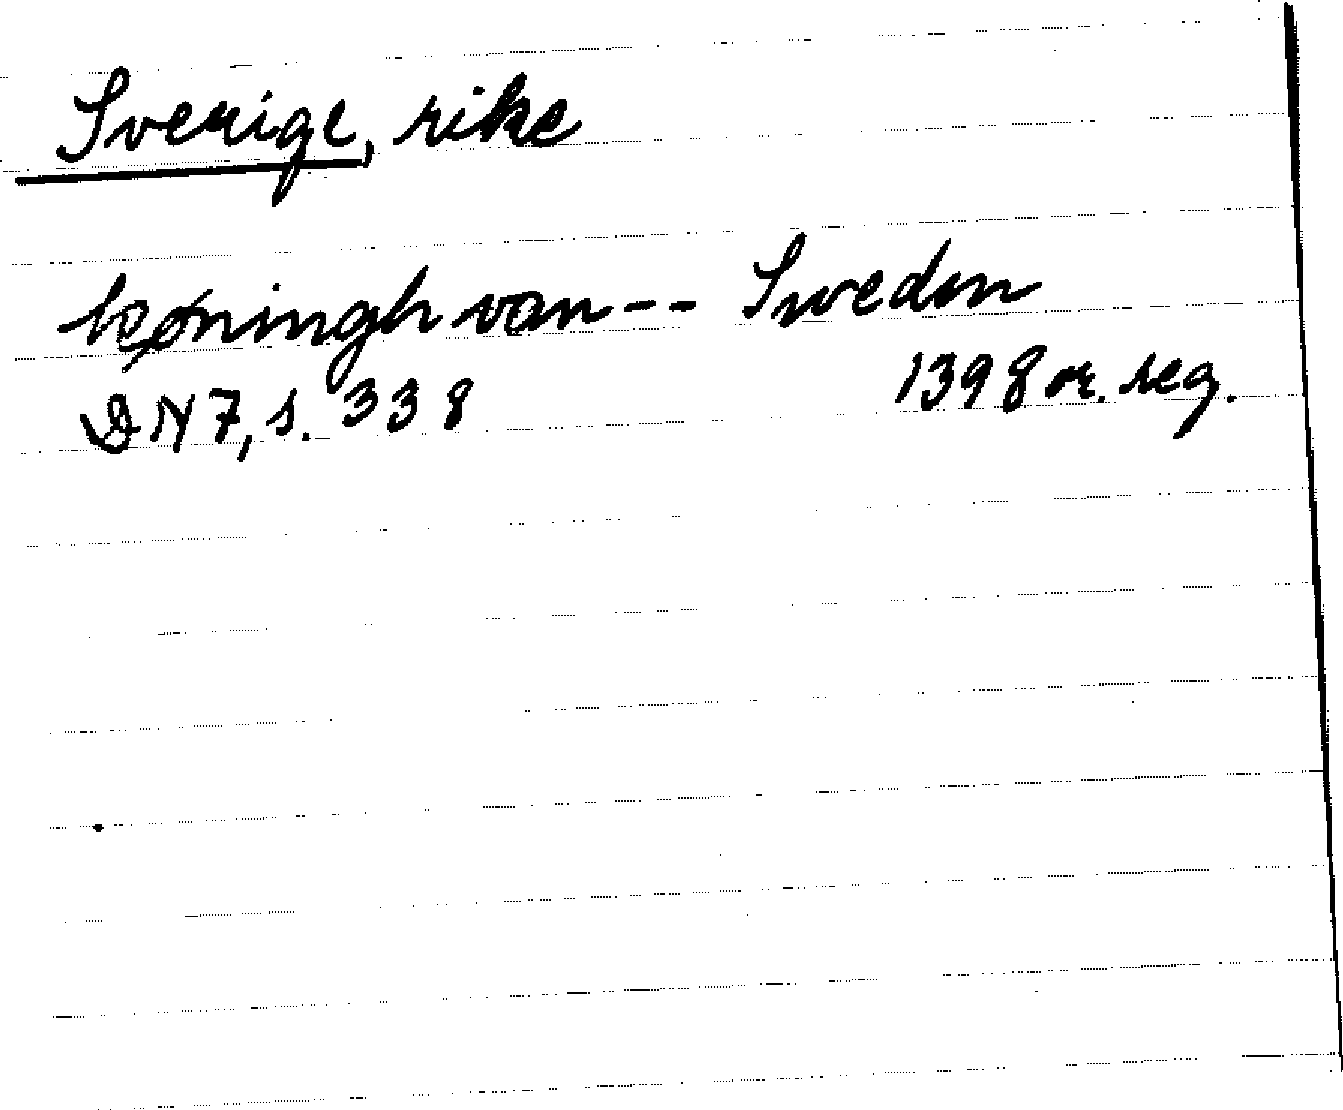 Sverige, rike
køningh van -- Sweden
DN 7, s. 338 1398 or. reg.